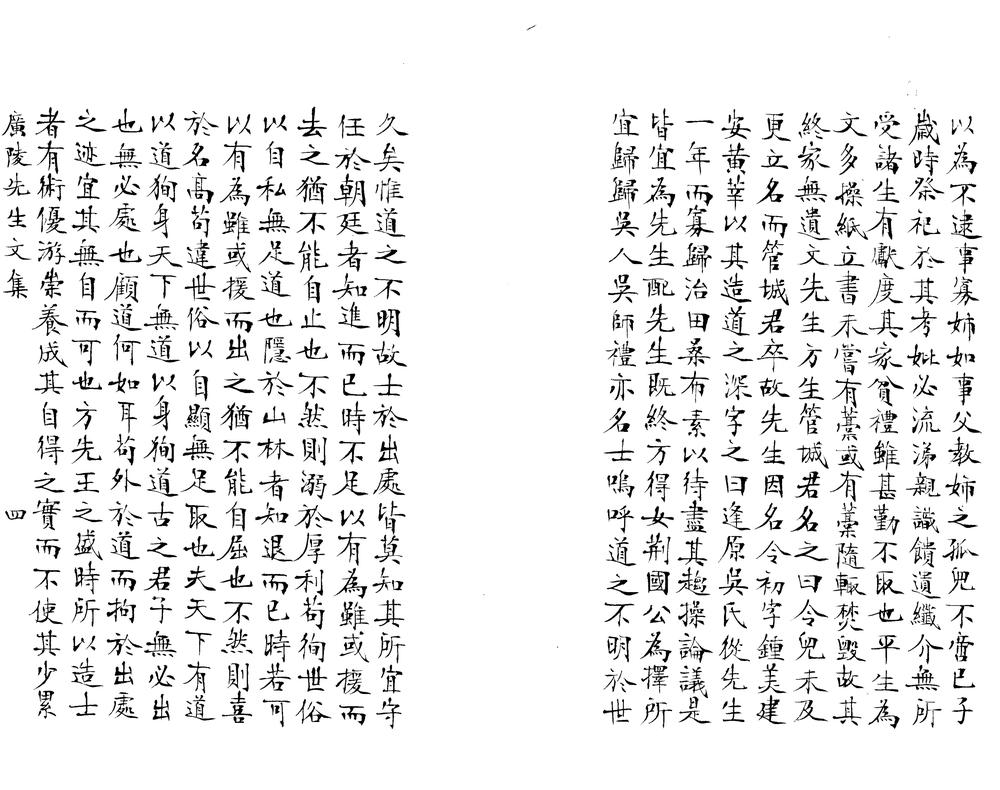 以為不逮事寡姊如事父教姊之孤兒不啻已子
歲時祭祀於其考妣必流涕親識饋遺纖介無所
受諸生有獻度其家貧禮雖甚勤不取也平生為
文多操紙立書未嘗有藁或有藁隨輒焚毀故其
終家無遺文先生方生管城君名之曰令兒未及
更立名而管城君卒故先生因名令初字鍾美建
安黃莘以其造道之深字之曰逢原吳氏從先生
一年而寡歸治田桑布素以待盡其趨操論議是
皆宜為先生配先生既終方得女荆國公為擇所
宜歸歸吳人吳師禮亦名士嗚呼道之不明於世
久矣惟道之不明故士於出處皆莫知其所宜守
任於朝廷者知進而已時不足以有為雖或援而
去之猶不能自止也不然則溺於厚利苟徇世俗
以自私無足道也隱於山林者知退而已時若可
以有為雖或援而出之猶不能自屈也不然則喜
於名高苟違世俗以自顯無足取也夫天下有道
以道狥身天下無道以身狥道古之君子無必出
也無必處也顧道何如耳苟外於道而拘於出處
之迹宜其無自而可也方先王之盛時所以造士
者有術優游崇養成其自得之實而不使其少累
廣陵先生文集 四